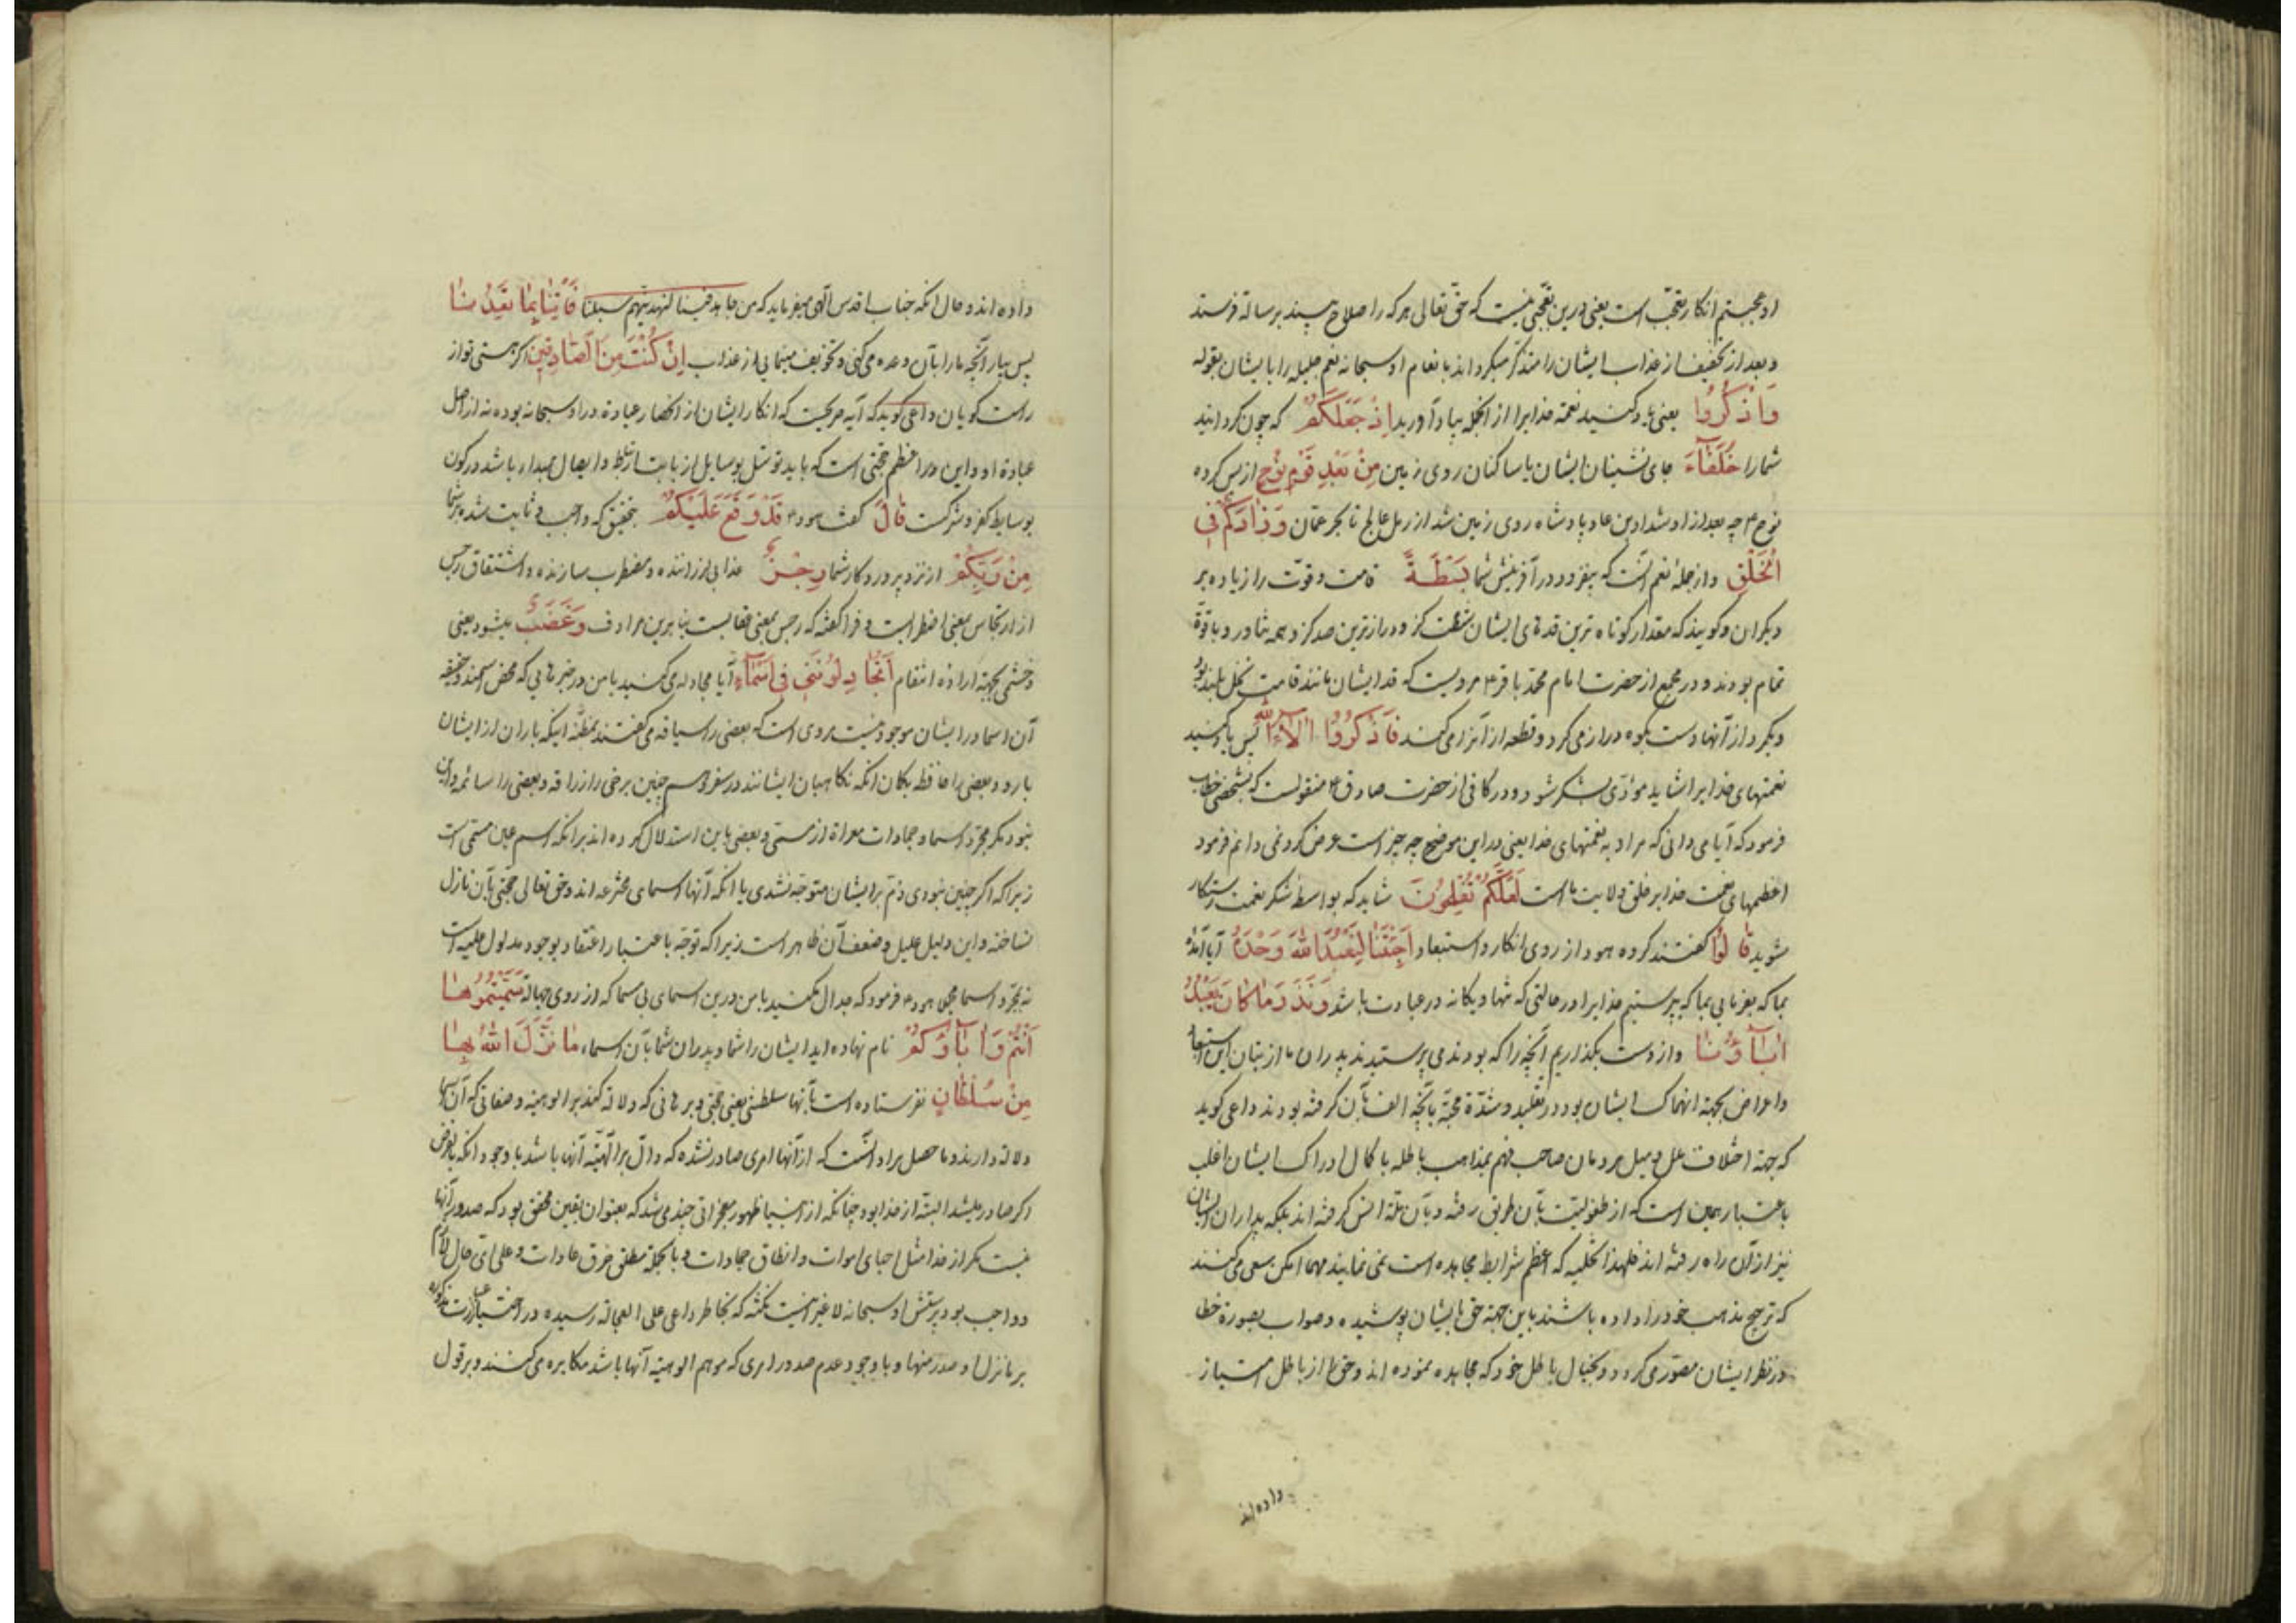 او عجبتم انکار تعجّب است یعنی درین تعجّبی نیست که حق تعالی هر که را صلاح بیند برسالة فرستد
و بعد از تخفیف از عذاب ایشان را متذکّر میکرداند بانعام او سبحانه نعم جلیله را بایشان بقوله
وَاذْكُرُوا یعنی یاد کنید نعمة خدایرا از انجمله بیاد آورید اِذْ جَعَلَكُمْ که چون کردانید
شما را خُلَفَآءَ جای نشینان ایشان یا ساکنان روی زمین مِنْ بَعْدِ قَوْمِ نُوحٍ از پس کروه
نوح ۴ چه بعد از او شداد بن عاد پادشاه روی زمین شد از رمل عالج تا بحر عمّان وَزَادَكُمْ فِى
الْخَلْقِ و از جملهٔ نعم آنست که بیفزود در آفرینش شما بَسْطَةً قامت و قوّت را زیاده بر
دیکران و کویند که مقدار کوتاه ترین قدهای ایشان شصت کز و درازترین صد کز و همه تناور و با قوّة
تمام بودند و در مجمع از حضرت امام محمّد باقر ۴ مرویست که قد ایشان مانند قامت نخل بلند بود
و یکمرد از آنها دست بکوه دراز می کرد و قطعه از آنرا می کند فَاذْكُرُوا اٰلَآءَ اللّٰهِ پس یاد کنید
نعمتهای خدایرا شاید مؤدّی بشکر شود و در کافی از حضرت صادق ۴ منقولست که بشخصی خطاب
فرمود که آیا می دانی که مراد به نعمتهای خدا یعنی در این موضع چه چیز است عرض کرد نمی دانم فرمود
اعظمهای نعمت خدا بر خلق ولایت ما است لَعَلَّكُمْ تُفْلِحُونَ شاید که بواسطه شکر نعمت رستکار
شوید قَالُوٓا کفتند کروه هود از روی انکار و استبعاد اَجِئْتَنَا لِنَعْبُدَ اللّٰهَ وَحْدَهُ آیا آمدهٔ
بما که بفرمایی بما که بپرستیم خدایرا در حالتی که تنها و یکانه در عبادت باشد وَنَذَرَ مَا كَانَ يَعْبُدُ
اٰبَآؤُنَا و از دست بکذاریم آنچه را که بودند می پرستیدند پدران ما از بتان این استبعاد
و اعراض بجهة انهماک ایشان بود در تقلید و شدّة محبّة بآنچه الف بآن کرفته بودند داعی کوید
که جهة اختلاف ملل و میل مردمان صاحب فهم بمذاهب باطله با کمال ادراک ایشان اغلب
باعتبار همین است که از طفولیّت بآن طریق رفته و بآن ملّة انس کرفته اند بلکه پداران ایشان
نیز از آن راه رفته اند فلهذا تخلیه که اعظم شرایط مجاهده است نمی نمایند مهما امکن سعی می کنند
که ترجیح مذهب خود را داده باشند باین جهة حق بایشان پوشیده و صواب بصورة خطا
در نظر ایشان مصوّر می کردد و بخیال باطل خود که مجاهده نموده اند و حق را از باطل امتیاز
داده اند
داده اند و حال انکه جناب اقدس الهی میفرماید که من جاهد فینا لنهدینّهم سبلنا فَأْتِنَا بِمَا تَعِدُنَا
پس بیار آنچه ما را بآن وعده می کنی و تخویف مینمایی از عذاب اِنْ كُنْتَ مِنَ الصَّادِقِينَ اکر هستی تو از
راست کویان داعی کوید که آیه صریحست که انکار ایشان از انحصار عبادة در او سبحانه بوده نه از اصل
عبادة او و این در اعظم حجّتی است که باید توسّل بوسایل از بابت ارتباط و ایصال بمبدا، باشد در کون
بوسایط کفر و شرکست قَالَ کفت هود ۴ قَدْ وَقَعَ عَلَيْكُمْ بتحقیق که واجب و ثابت شد بر شما
مِنْ رَبِّكُمْ از نزد پروردکار شما رِجْسٌ عذابی لرزاننده و مضطرب سازنده و اشتقاق رجس
از ارتجاس بمعنی اضطرابست و فرا کفته که رجس بمعنی عقابست بنا برین مرادف وَغَضَبٌ میشود یعنی
و خشمی بجهة ارادهٔ انتقام اَتُجَادِلُونَنِى فِىٓ اَسْمَآءٍ آیا مجادله می کنید با من در خبرهایی که محض اسمند و حقیقه
آن اسما در ایشان موجود نیست مروی است که بعضی را ساقیه می کفتند بمظنّهٔ اینکه باران از ایشان
بارد و بعضی را حافظه بکمان انکه نکاهبان ایشانند در سفر و همچنین برخی را رازقه و بعضی را سالمه و این
نبود مکر مجرّد اسما و جمادات معراة از مسمّی و بعضی باین استدلال کرده اند بر انکه اسم عین مسمّی است
زیرا که اکر چنین نبودی ذمّ بر ایشان متوجّه نشدی با انکه آنها اسمای مخترعه اند و حق تعالی حجّتی بآن نازل
نساخته و این دلیل علیل و ضعف آن ظاهر است زیرا که توجّه باعتبار اعتقاد بوجود مدلول علیه است
نه بمجرّد اسما مجملا هود ۴ فرمود که جدال مکنید با من درین اسمای بی مسما که از روی جهالة سَمَّيْتُمُوهَا
اَنْتُمْ وَاٰبَآؤُكُمْ نام نهاده اید ایشان را شما و پدران شما بآن اسماء مَا نَزَّلَ اللّٰهُ بِهَا
مِنْ سُلْطَانٍ نفرستاده است بآنها سلطنتی یعنی حجّتی و برهانی که دلالة کند بر الوهیّة و صفاتی که آن اسما
دلالة دارند و ما حصل مراد آنست که از آنها امری صادر نشده که دالّ بر الهیّة آنها باشد با وجود انکه بالفرض
اکر صادر میشد البته از خدا بود چنانکه از انبیا ظهور معجزاتی چند می شد که بعنوان یقین محقّق بود که صدور آنها
نیست مکر از خدا مثل احیای اموات و انطاق جمادات و بالجمله مطلق خرق عادات و علی ای حال لازم
و واجب بود پرستش او سبحانه لا غیر نکته که بخاطر داعی علی العجالة رسیده در اختیار عبارت مذکوره
بر ما نزل و صدر منها و با وجود عدم صدور امری که موهم الوهیّة آنها باشد مکابره می کنند و بر قول